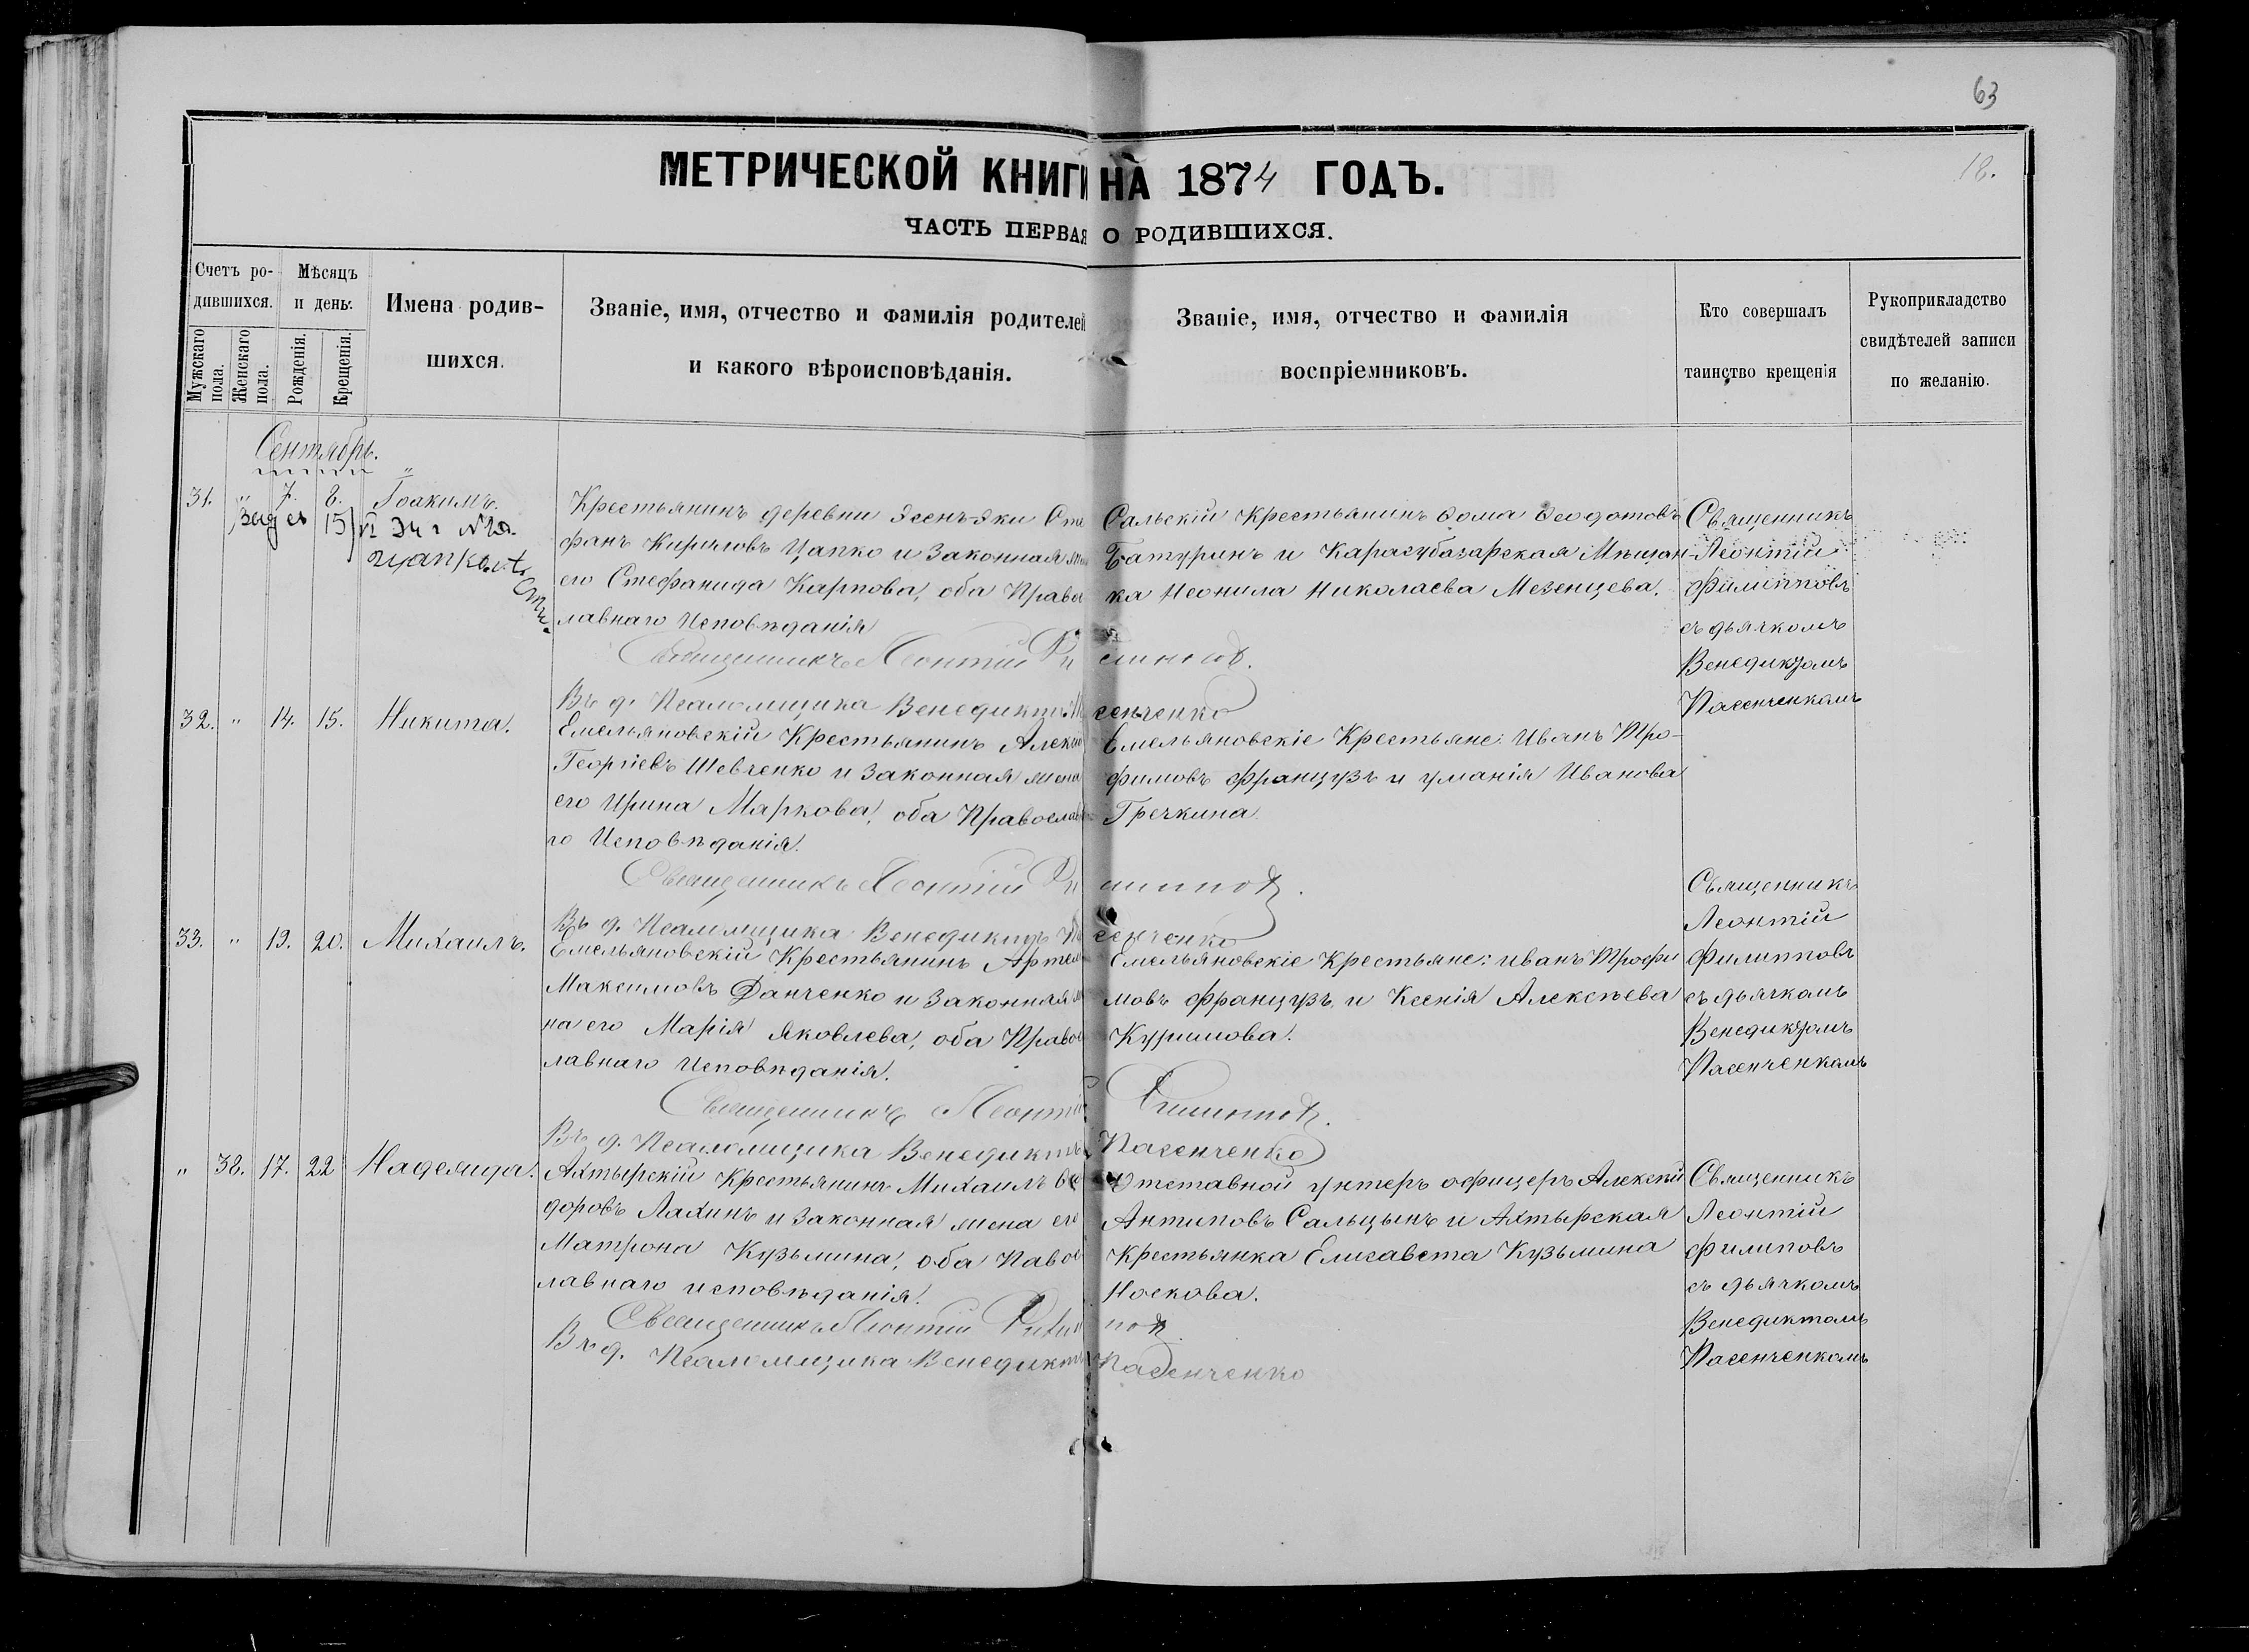 63
18.
МЕТРИЧЕСКОЙ КНИГИ НА 1874 ГОДЪ.
ЧАСТЬ ПЕРВАЯ О РОДИВШИХСЯ.
Счетъ ро-
дившихся.
Мужскаго пола.
Женскаго пола.
Мѣсяцъ
и день.
Рожденія.
Крещенія.
Имена родив-
шихся.
Званіе, имя, отчество и фамилія родителей
и какого вѣроисповѣданія.
Званіе, имя, отчество и фамилія
воспріемниковъ.
Кто совершалъ
таинство крещенія
Рукоприкладство
свидѣтелей записи
по желанію.
Сентябрь.
31. " 7. 8. Іоакимъ.
15
Крестьянинъ деревни Эсенъ-Эки Сте
фанъ Кириловъ Цапко и законная
его Стефанида Карпова, оба Право
лавнаго Исповѣданія
Сальскій Крестьянинъ Ѳома Ѳеодотовъ
Батуринъ и Карасубазарская Мѣщан-
ка Неонила Николаева Мезенцева.
Священникъ
Леонтій
Филипповъ
съ дьячкомъ
Венедиктомъ
Пасенченкомъ
Священникъ Леонтій Филипповъ.
Въ д. Псаломщика Венедиктъ Пасенченко
32. " 14. 15. Никита.
Емельяновскій Крестьянинъ Алекс
Георгіевъ Шевченко и законная жена
его Ирина Маркова, оба Православна
го Исповѣданія.
Емельяновскіе Крестьяне: Иванъ Тро-
фимовъ Французъ и Уманія Иванова
Гречкина.
Священникъ Леонтій Филипповъ.
Въ д. Псаломщика Венедиктъ Пасенченко
33. " 19. 20. Михаилъ.
Емельяновскій Крестьянинъ Артем
Максимовъ Данченко и законная же
на его Марія Яковлева, оба Правос
лавнаго Исповѣданія.
Емельяновскіе Крестьяне: Иванъ Трофи
мовъ Французъ и Ксенія Алексѣева
Куримова.
Священникъ
Леонтій
Филипповъ
съ дьячкомъ
Венедиктомъ
Пасенченкомъ
Священникъ Леонтій Филипповъ.
Въ д. Псаломщика Венедиктъ Пасенченко
" 38. 17. 22 Надежда.
Ахтырскій Крестьянинъ Михаилъ Ѳео
доровъ Лахинъ и законная жена его
Матрона Кузьмина, оба Павос
лавнаго исповѣданія.
Отставной унтеръ офицеръ Алексѣй
Антиповъ Сальцынъ и Ахтырская
Крестьянка Елисавета Кузьмина
Носкова.
Священникъ
Леонтій
Филиповъ
съ дьячкомъ
Венедиктомъ
Пасенченкомъ
Священникъ Леонтій Филиповъ.
Въ д. Псаломщика Венедиктъ Пасенченко